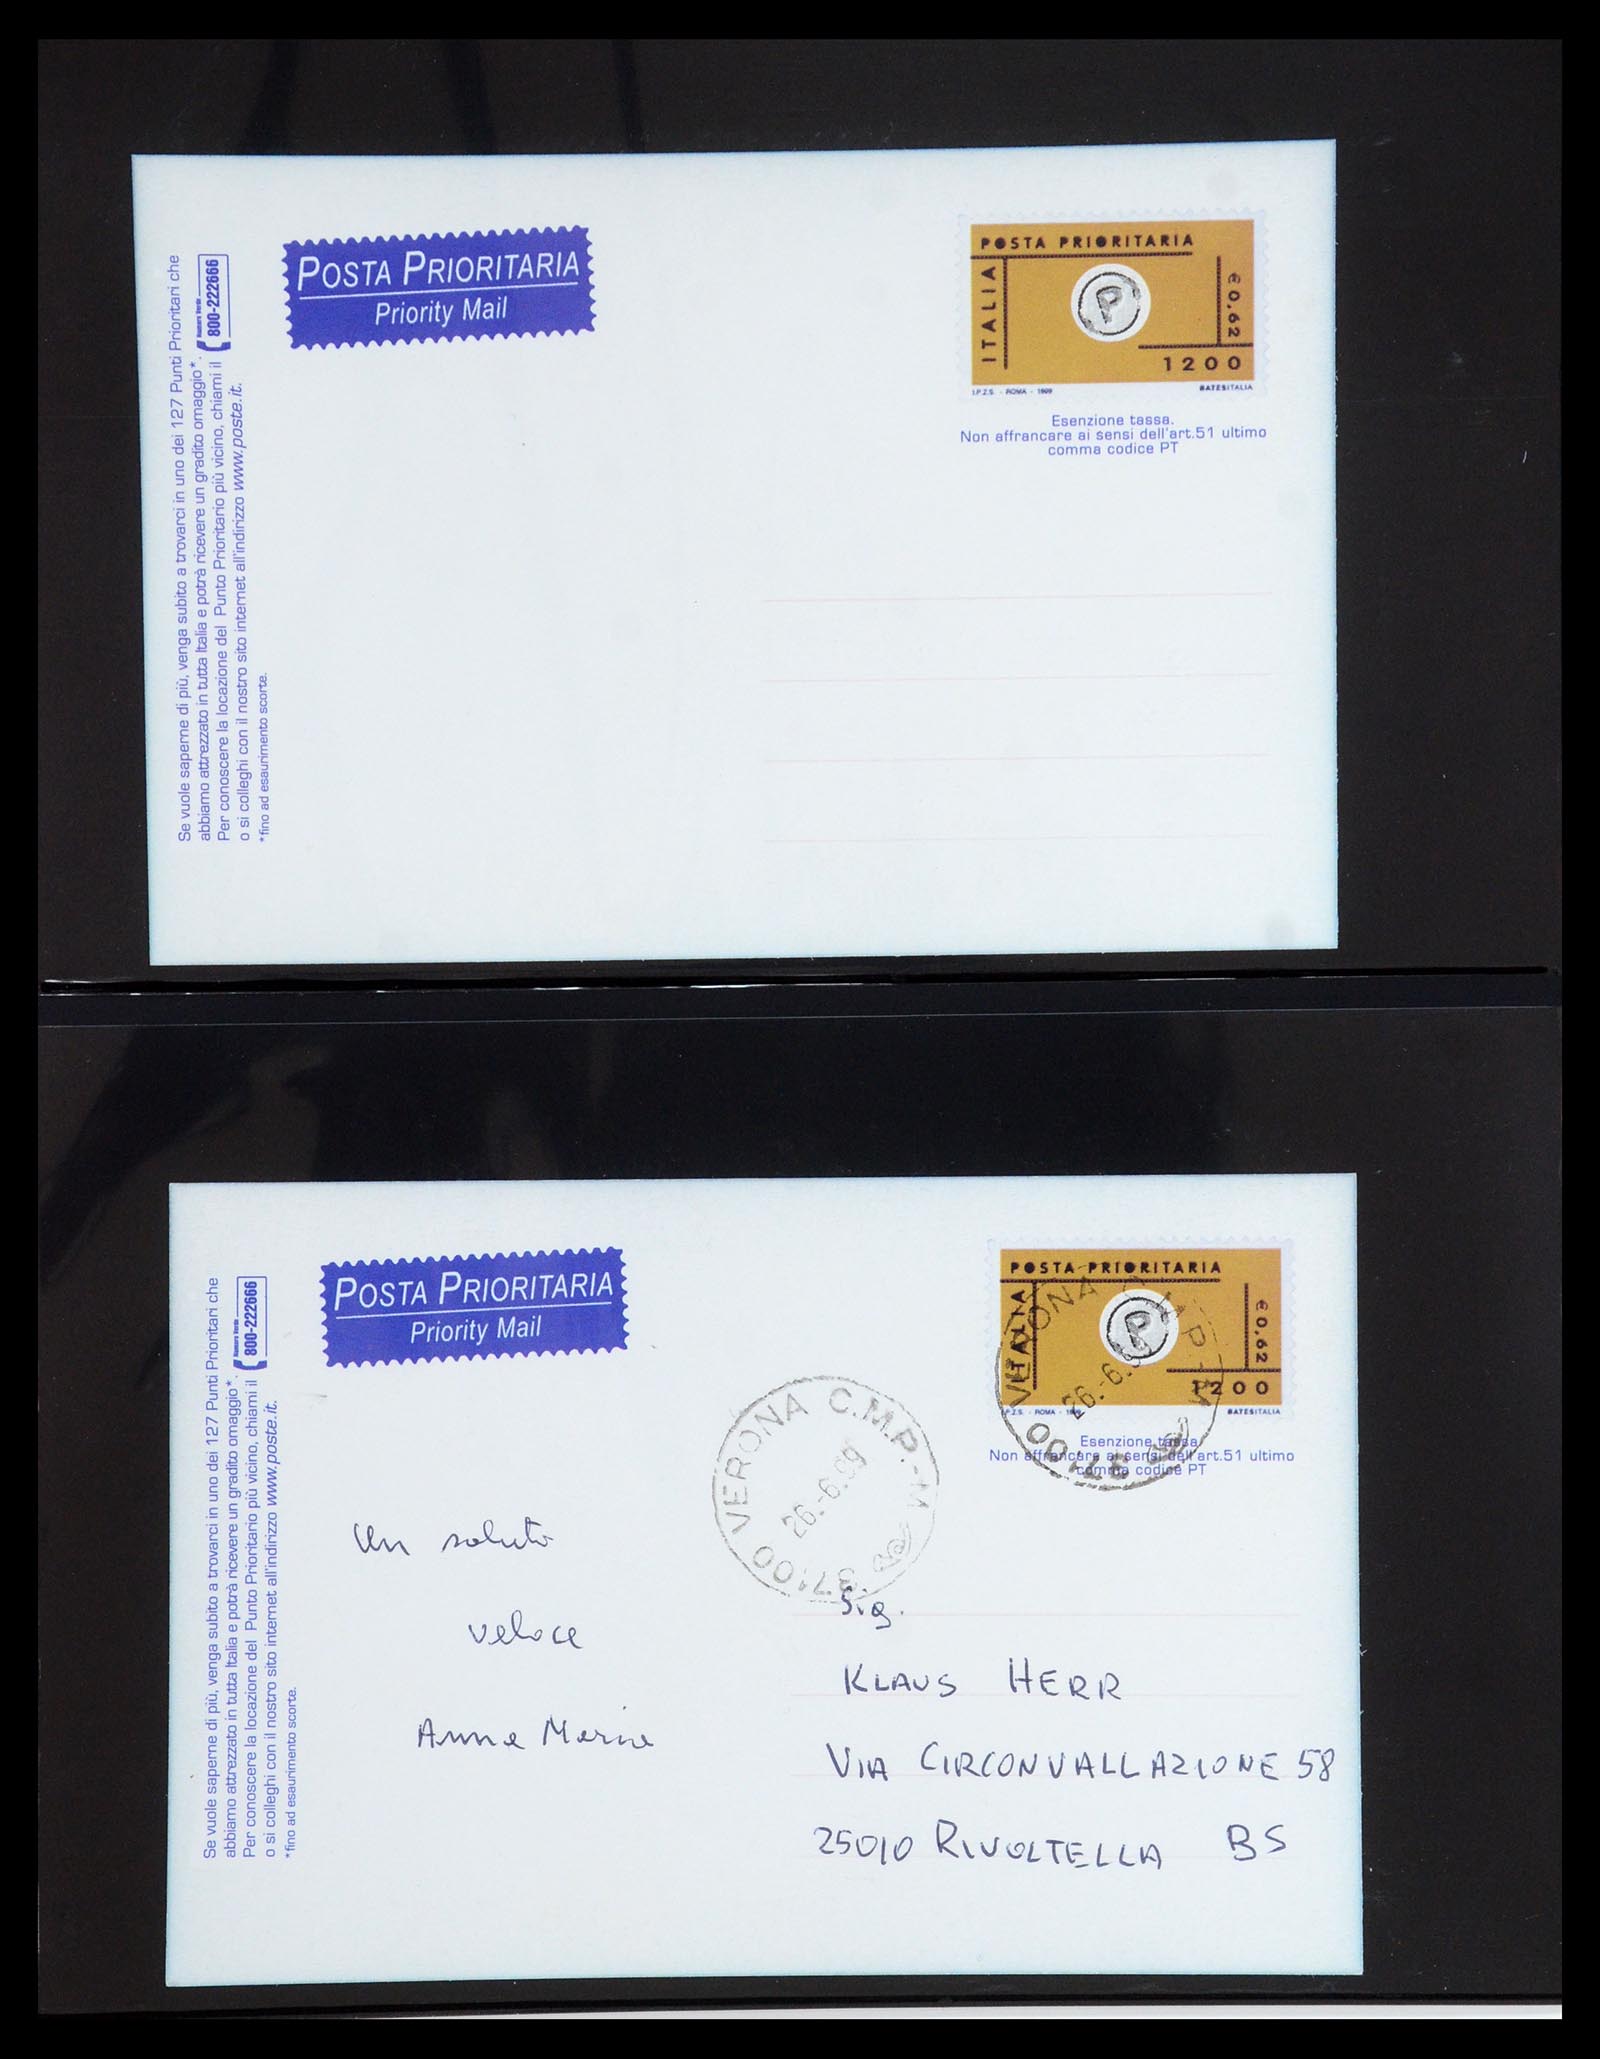 Se vuole saperne di più, venga subito a trovarci in uno dei 127 Punti Prioritari che
abbiamo attrezzato in tutta Italia e potrà ricevere un gradito omaggio*.
Numero Verde
800-222666
Per conoscere la locazione del Punto Prioritario più vicino, chiami il
o si colleghi con il nostro sito internet all'indirizzo www.poste.it.
*fino ad esaurimento scorte.
POSTA PRIORITARIA
Priority Mail
POSTA PRIORITARIA
ITALIA
P
€ 0,62
1200
I.P.Z.S. - ROMA - 1999
BATESITALIA
Esenzione tassa.
Non affrancare ai sensi dell'art.51 ultimo
comma codice PT
Se vuole saperne di più, venga subito a trovarci in uno dei 127 Punti Prioritari che
abbiamo attrezzato in tutta Italia e potrà ricevere un gradito omaggio*.
Numero Verde
800-222666
Per conoscere la locazione del Punto Prioritario più vicino, chiami il
o si colleghi con il nostro sito internet all'indirizzo www.poste.it.
*fino ad esaurimento scorte.
POSTA PRIORITARIA
Priority Mail
POSTA PRIORITARIA
ITALIA
P
€ 0,62
1200
I.P.Z.S. - ROMA - 1999
BATESITALIA
Esenzione tassa.
Non affrancare ai sensi dell'art.51 ultimo
comma codice PT
37100 VERONA C.M.P.-M
26.-6.99
37100 VERONA C.M.P.-M
26.-6.99
Un saluto
veloce
Anna Maria
Sig.
KLAUS HERR
VIA CIRCONVALLAZIONE 58
25010 RIVOLTELLA BS